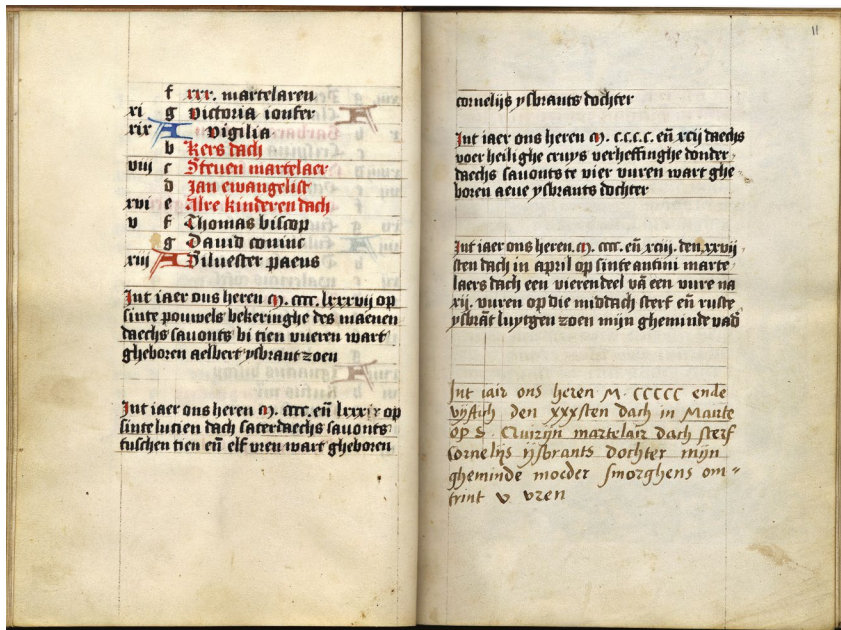 f xxx. martelaren
xi g victoria ioufer
xix A vigilia
b kers dach
viii c Steuen martelaer
d Jan ewangelist
xvi e Alre kinderen dach
v f Thomas biscop
g Dauid coninc
xiii A Siluester paeus
Int iaer ons heren m. cccc. lxxxvij op
sinte pouwels bekeringhe des maenen
daechs sauonts bi tien vueren wart
gheboren aelbert ysbrant zoen
Int iaer ons heren m. cccc. en̄ lxxxix op
sinte lucien dach saterdaechs sauonts
tuschen tien en̄ elf vren wart gheboren
11
cornelijs ysbrants dochter
Int iaer ons heren m. c.c.c.c. en̄ xcij daechs
voer heilighe cruys verheffinghe donder
daechs sauonts te vier vuren wart ghe
boren aeue ysbrants dochter
Int iaer ons heren. m. cccc. en̄ xciij. den xxvij
sten dach in april op sinte antini marte
laers dach een vierendeel vā een vure na
xij. vuren op die middach sterf en̄ ruste
ysbrāt luytgen zoen mijn gheminde vad
Int iair ons heren M. CCCCC ende
vijftich den xxxsten dach in Marte
op S. Quirijn martelair dach sterf
cornelijs ijsbrants dochter mijn
gheminde moeder smorghens om=
trint v vren